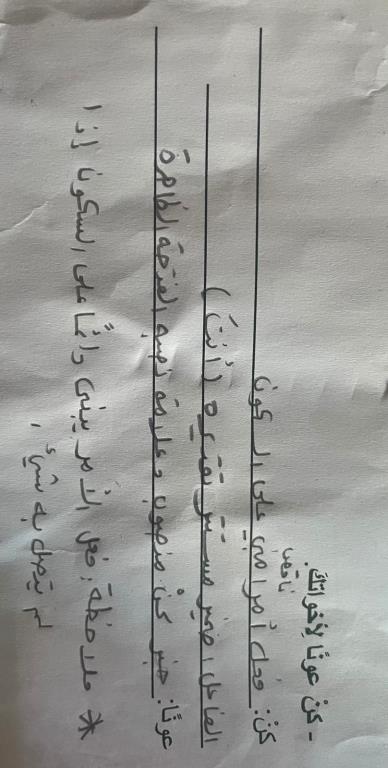 - كن عونًا لإخوانك.
ناقص
كن: فعل أمر مبني على السكون
الفاعل: ضمير مستتر تقديره (أنتَ)
عونًا: خبر كنْ منصوب وعلامة نصبه الفتحة الظاهرة
* ملاحظة: فعل الأمر يبنى دائمًا على السكون إذا
لم يتصل به شيءٌ،